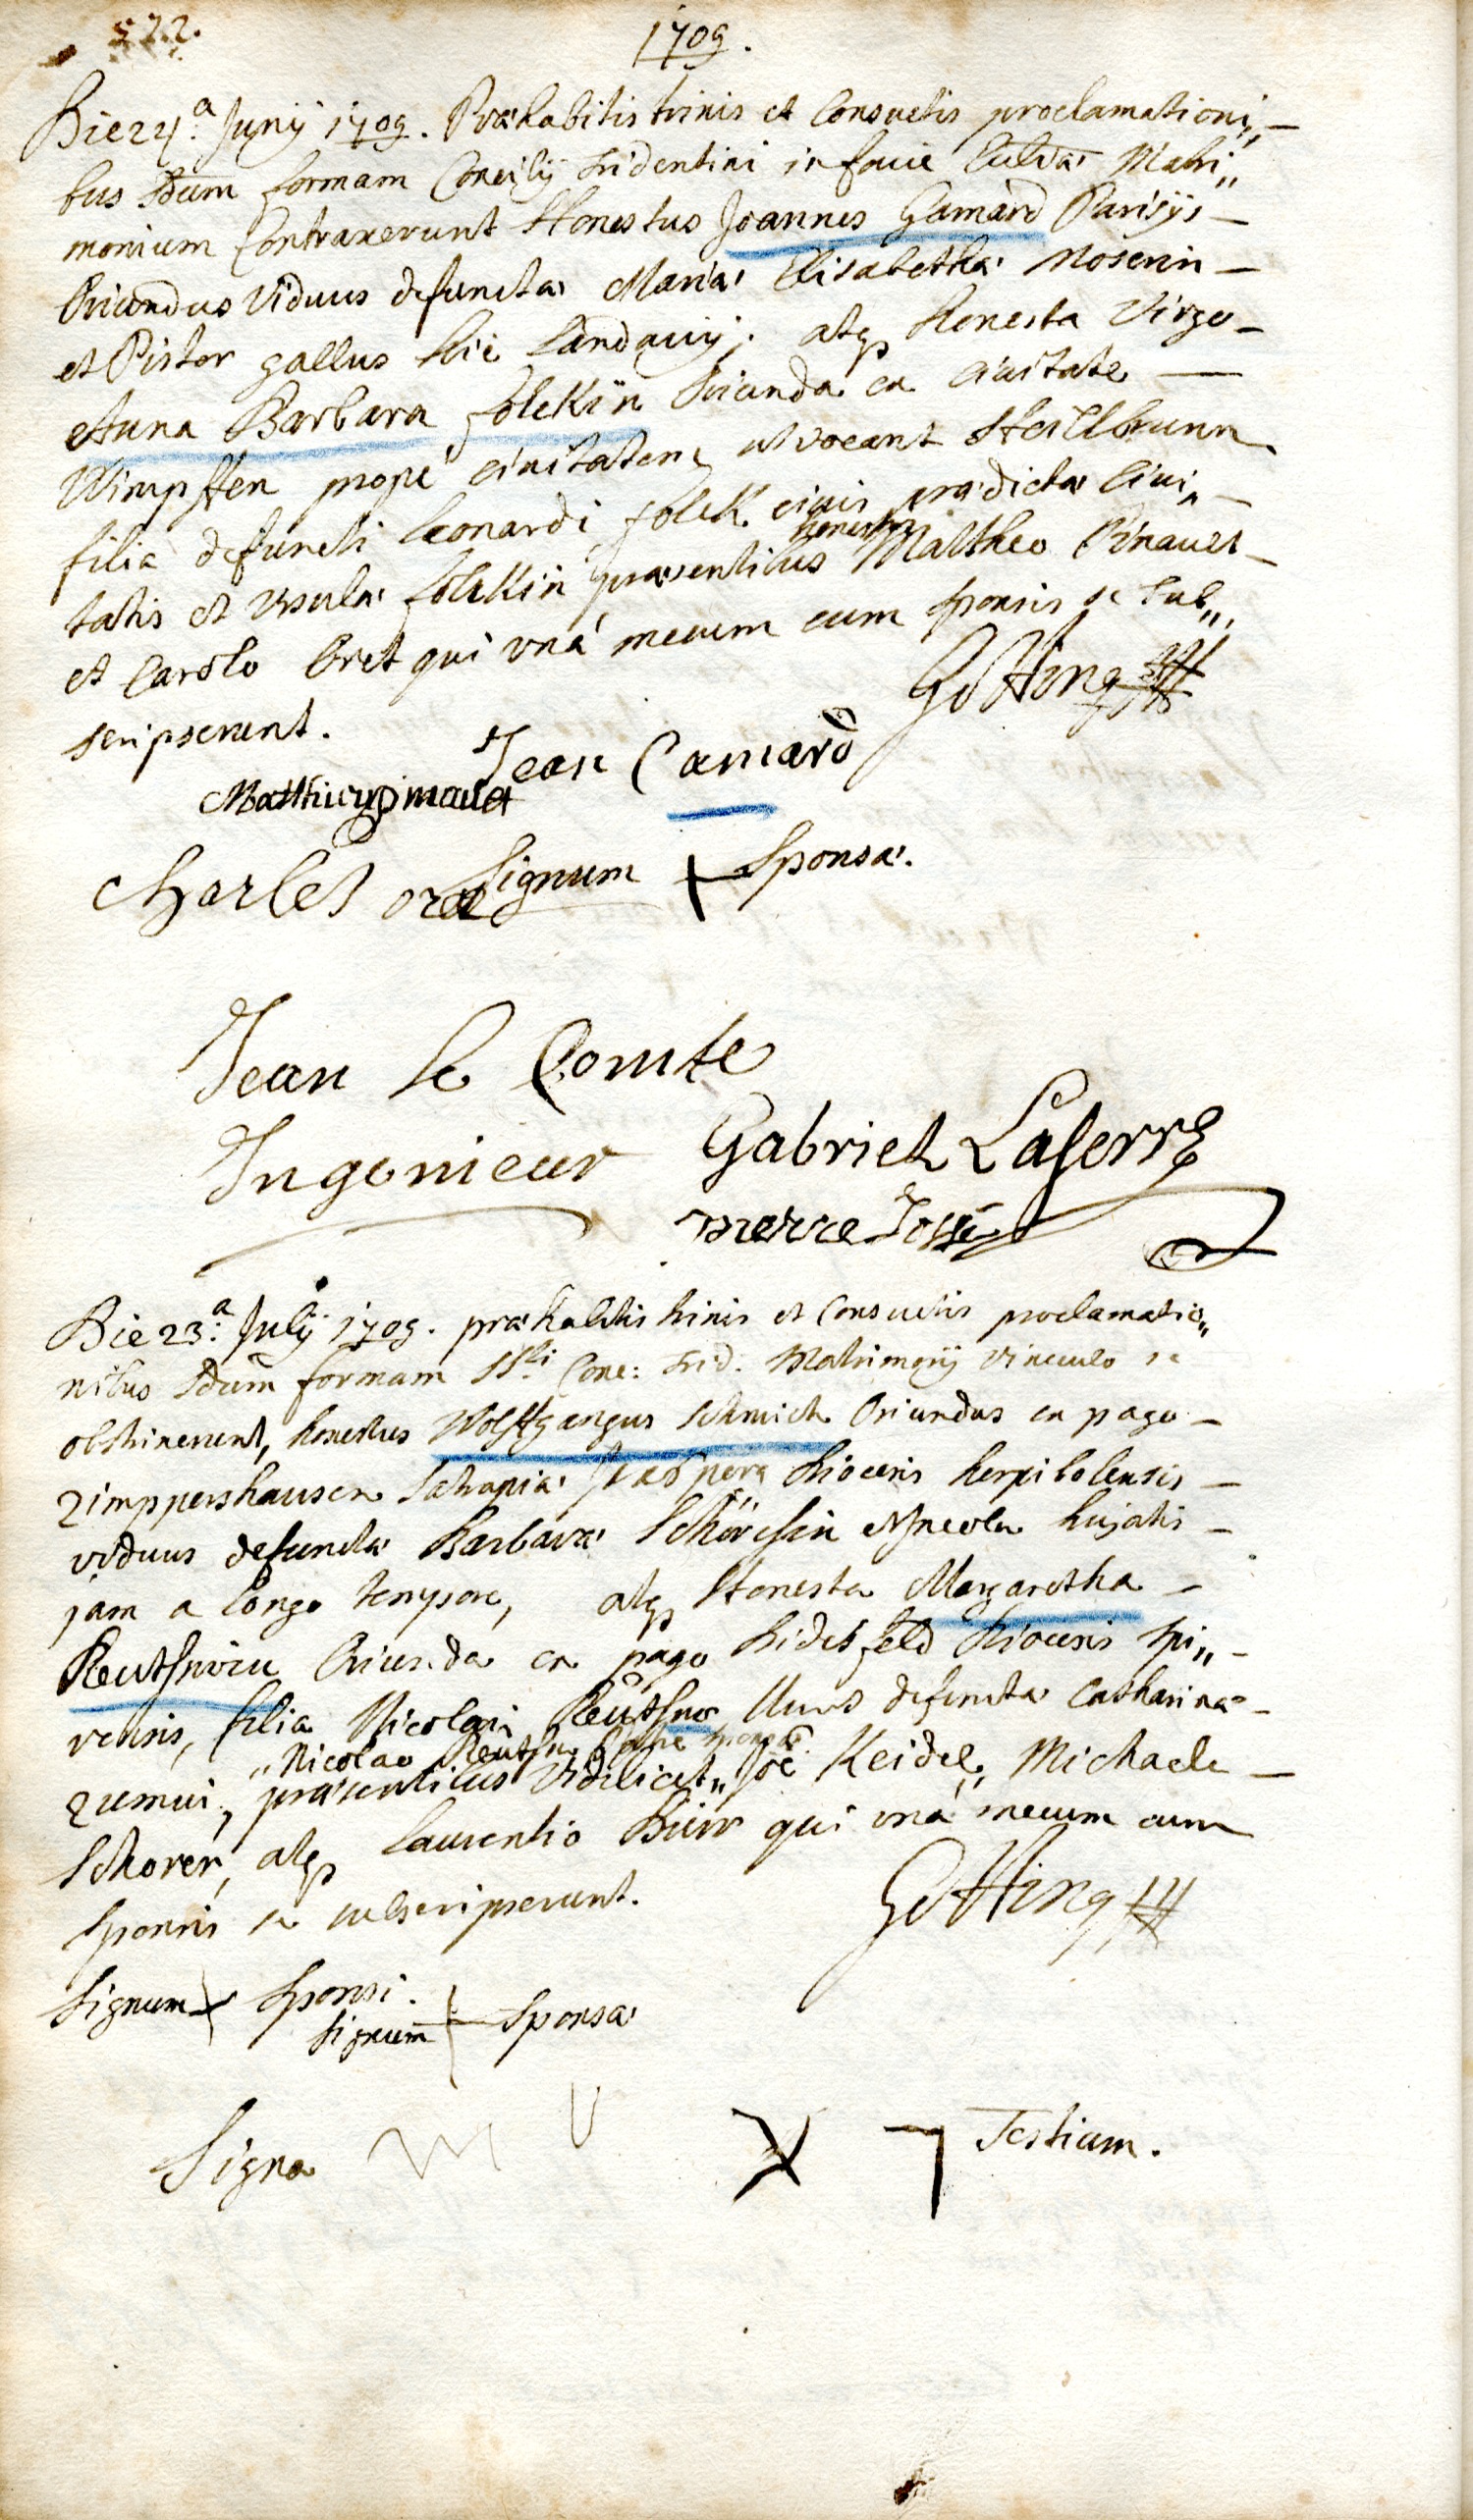 522.
1709.
Die 24.a Junij 1709. Præhabitis trinis et Consuetis proclamationi„
bus Sdum formam Concilij tridentini in facie Ecclesiæ Matri„
monium Contraxerunt Honestus Joannes Gamard Parisijs
Oriundus Viduus defunctæ Mariæ Elisabethæ Moserin
et Pistor gallus hic Landavij; atq Honesta Virgo
Anna Barbara folckin Oriunda ex civitate
Wimpffen prope civitatem, ut vocant Heillbrunn
filia defuncti Leonardi folck civis prædictæ Civi„
tatis et Ursulæ folckin præsentibus honestis Mattheo Pinauet
et Carolo Oret qui unà mecum cum sponsis se Sub„
scripserunt.
Gotting
Jean Camard
Matthieu pinauet
Charles oret
Signum Sponsæ.
Jean le Comte
Ingenieur
Gabriel Laserre
pierre Josse
Die 23.a Julij 1709. præhabitis trinis et Consuetis proclamatio„
nibus Sdum formam SSti Conc: trid. Matrimonij vinculo se
obstrinxerunt, honestus Wolffgangus schmich Oriundus ex pago
Zimppershausen Satrapiæ diocesis herpibolensis
viduus defunctæ Barbaræ Incola hujatis
jam a longo tempore, atq Honesta Margaretha
Oriunda ex pago diocesis Spi„
rensis, filia Nicolai Uxoris defunctæ Catharinæ
„Nicolao
præsentibus Videlicet„ Joe Keidel, Michaele
Schorer, atq Laurentio qui unà mecum cum
Sponsis se subscripserunt.
Gotting
Signum Sponsi.
Signum Sponsæ
Signa M V Testium.